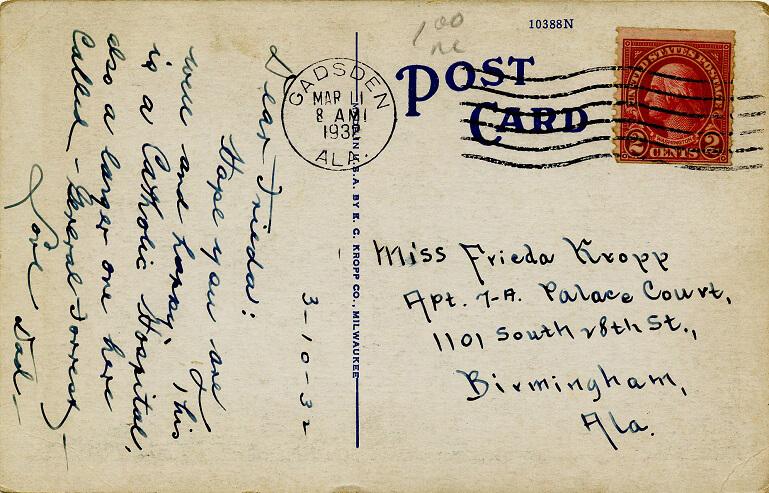 10388N
1.00
POST
CARD
GADSDEN
MAR 11
8 AM
1932
ALA.
UNITED STATES POSTAGE
WASHINGTON
2 CENTS 2
MADE IN U.S.A. BY E. C. KROPP CO., MILWAUKEE
3-10-32
Dear Frieda:
Hope you are
well and happy. This
is a Catholic Hospital,
also a larger one here
Called - General Forrest -
Love Dad -
Miss Frieda Kropp
Apt. 7-A. Palace Court,
1101 South 28th St.,
Birmingham,
Ala.